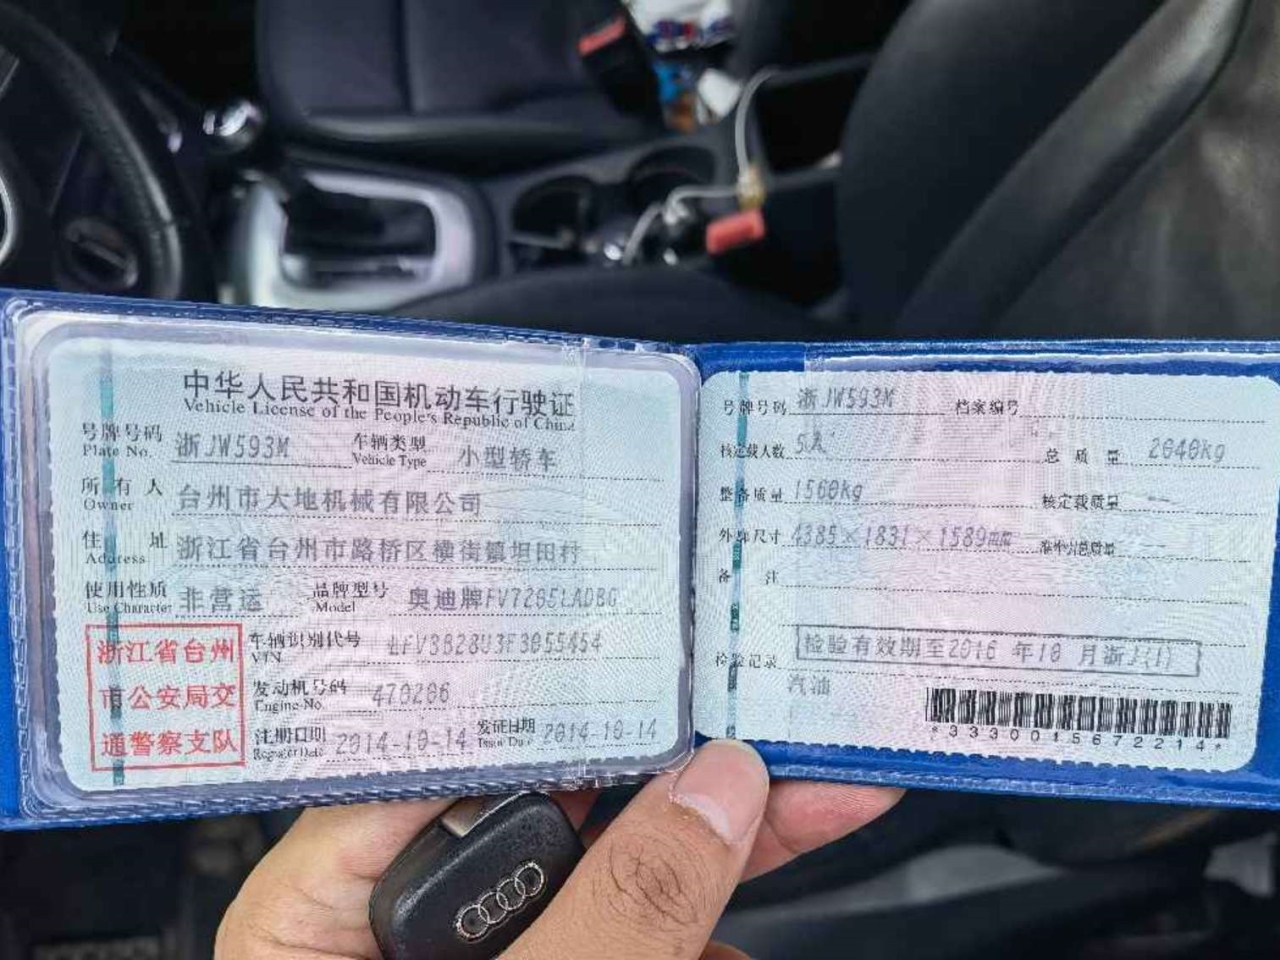 中华人民共和国机动车行驶证
Vehicle License of the People's Republic of China
号牌号码 浙JW593M 车辆类型 小型轿车
Plate No. Vehicle Type
所有人 台州市大地机械有限公司
Owner
住址 浙江省台州市路桥区横街镇坦田村
Address
使用性质 非营运 品牌型号 奥迪牌
Use Character Model
浙江省台州
市公安局交
通警察支队
车辆识别代号 LFV3B28U3F3055454
VIN
发动机号码 470206
Engine No.
注册日期 2014-10-14 发证日期 2014-10-14
Register Date Issue Date
号牌号码 浙JW593M 档案编号
核定载人数 5人 总质量 2040kg
整备质量 1560kg 核定载质量 --
外廓尺寸 4385×1831×1589mm 准牵引总质量
备注
检验记录 检验有效期至2016 年10 月浙J(1)
汽油
*3330015672214*